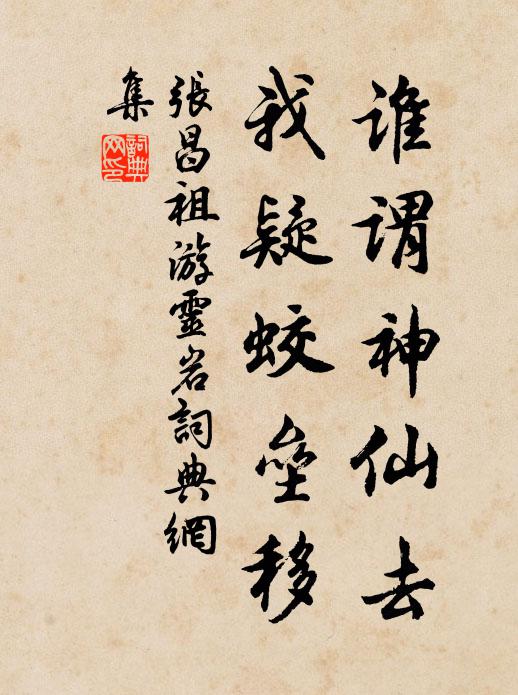 谁谓神仙去
我疑蛟垒移
張昌祖游靈岩詞典網
集
詞典
网印